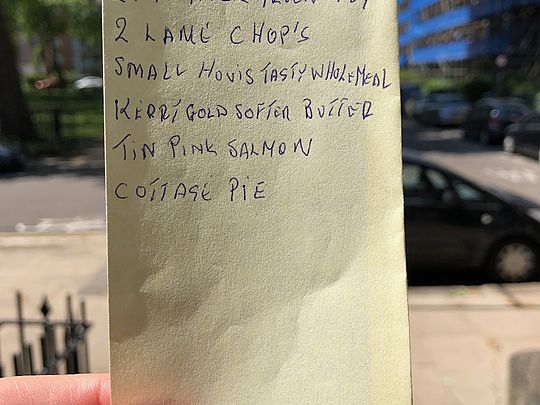 2 LAME CHOP'S
SMALL HOVIS TASTY WHOLEMEAL
KERRYGOLD SOFTER BUTTER
TIN PINK SALMON
COTTAGE PIE